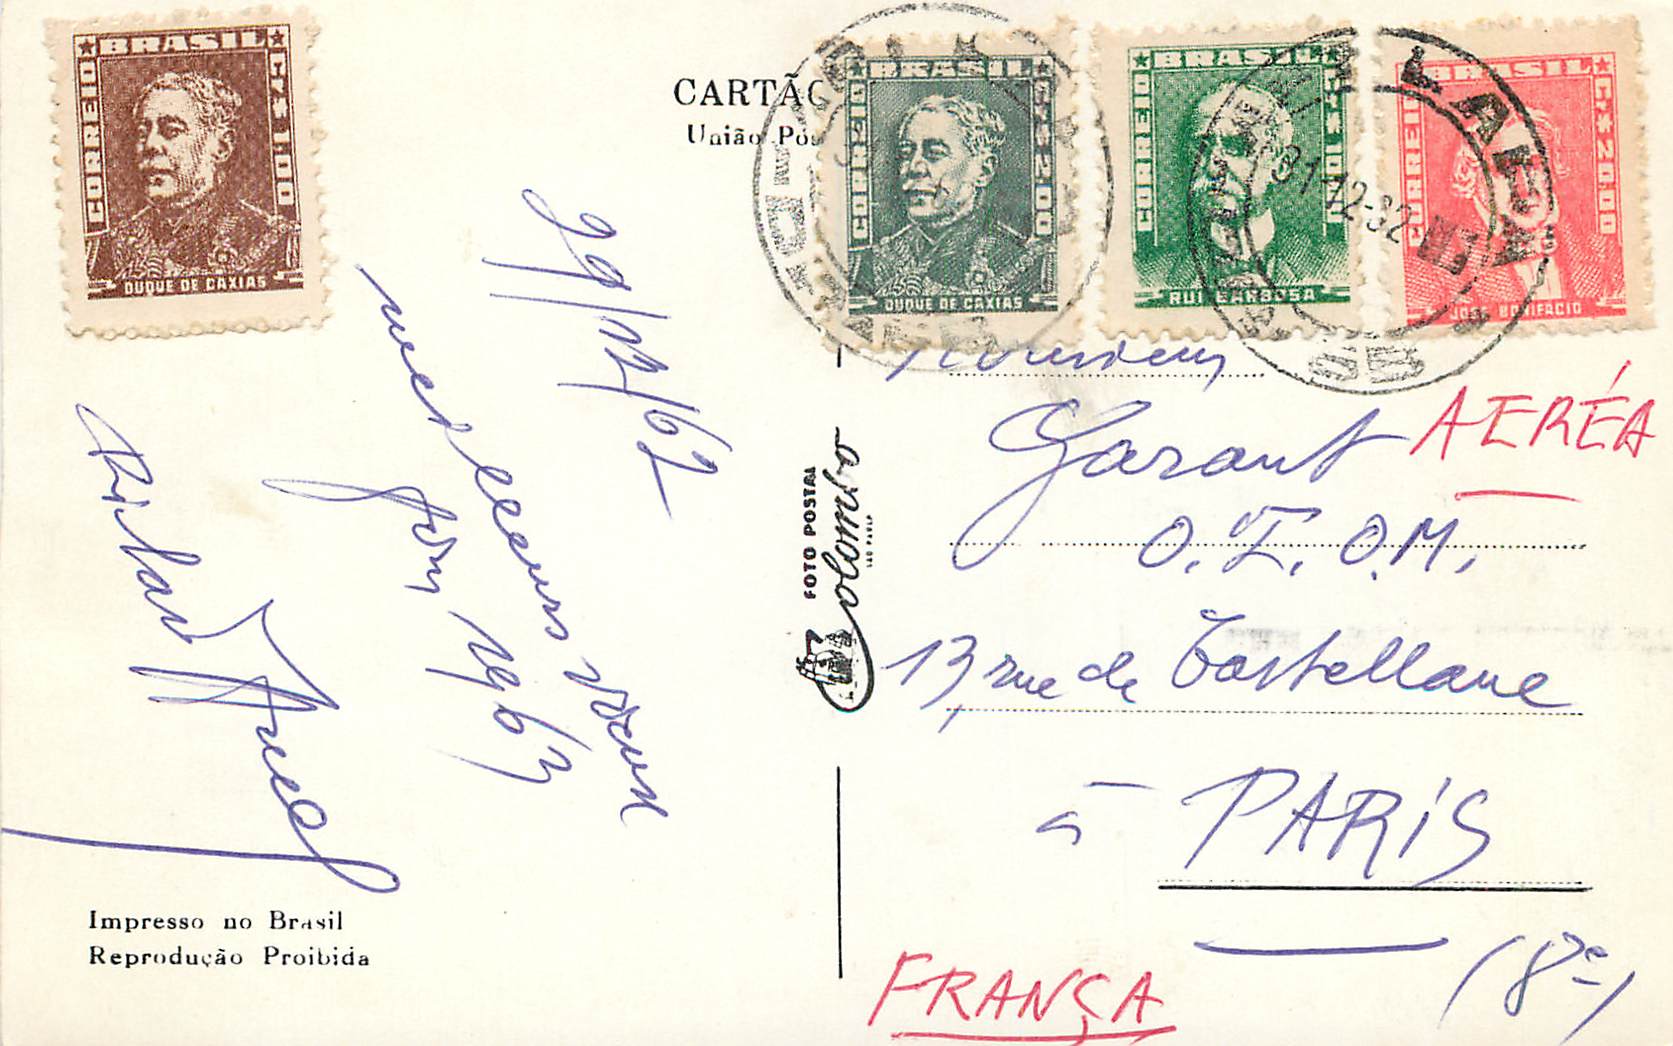 BRASIL
CORREIO
Cr$ 1,00
DUQUE DE CAXIAS
CARTÃO
União Pos
BRASIL
CORREIO
Cr$ 2,00
DUQUE DE CAXIAS
BRASIL
CORREIO
RUI BARBOSA
BRASIL
CORREIO
Cr$ 20,00
JOSÉ BONIFACIO
LAPA
31-12-62
29/12/62
meilleurs voeux
pour 1963
Monsieur
Garant
O.I.O.M.
13, rue de Castellane
à PARIS
(8e)
AERÉA
FRANÇA
FOTO POSTAL
Colombo
SÃO PAULO
Impresso no Brasil
Reprodução Proibida